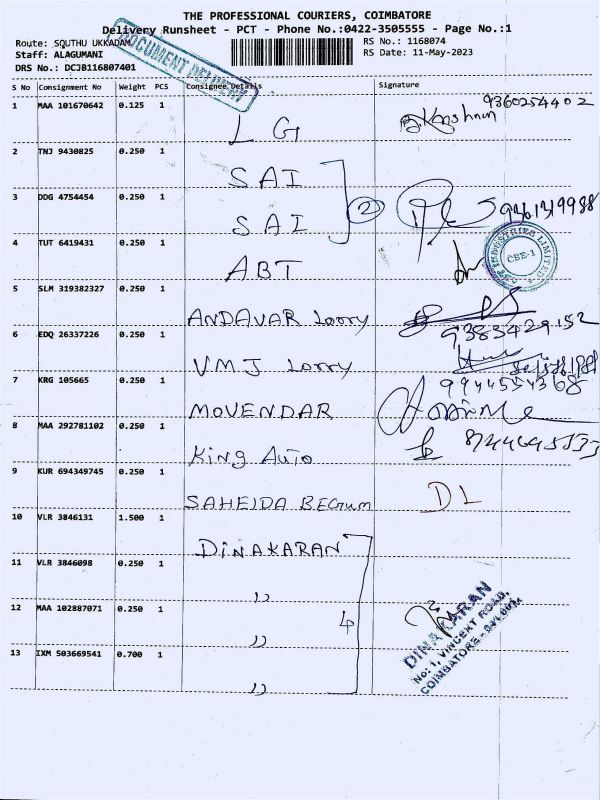 THE PROFESSIONAL COURIERS, COIMBATORE
Delivery Runsheet - PCT - Phone No.:0422-3505555 - Page No.:1
Route: SOUTHU UKKADAM
RS No.: 1168074
Staff: ALAGUMANI
RS Date: 11-May-2023
DRS No.: DCJB116807401
DOCUMENT DELIVERY
S No Consignment No Weight PCS Consignee Details Signature
1 MAA 101670642 0.125 1 LG 9360254402
2 TNJ 9430825 0.250 1 SAI
3 DDG 4754454 0.250 1 SAI 2
4 TUT 6419431 0.250 1 ABT
INDUSTRIES LIMITED
CBE-1
5 SLM 319382327 0.250 1 ANDAVAR Lorry 9383429152
6 EDQ 26337226 0.250 1 VMJ Lorry
7 KRG 105665 0.250 1 MOVENDAR
8 MAA 292781102 0.250 1 King Auto
9 KUR 694349745 0.250 1 SAHEIDA BEGum DL
10 VLR 3846131 1.500 1 DINAKARAN
11 VLR 3846098 0.250 1 ,,
12 MAA 102887071 0.250 1 ,, 4
13 IXM 503669541 0.700 1 ,,
DINAKARAN
No: 1, VINCENT ROAD,
COIMBATORE -